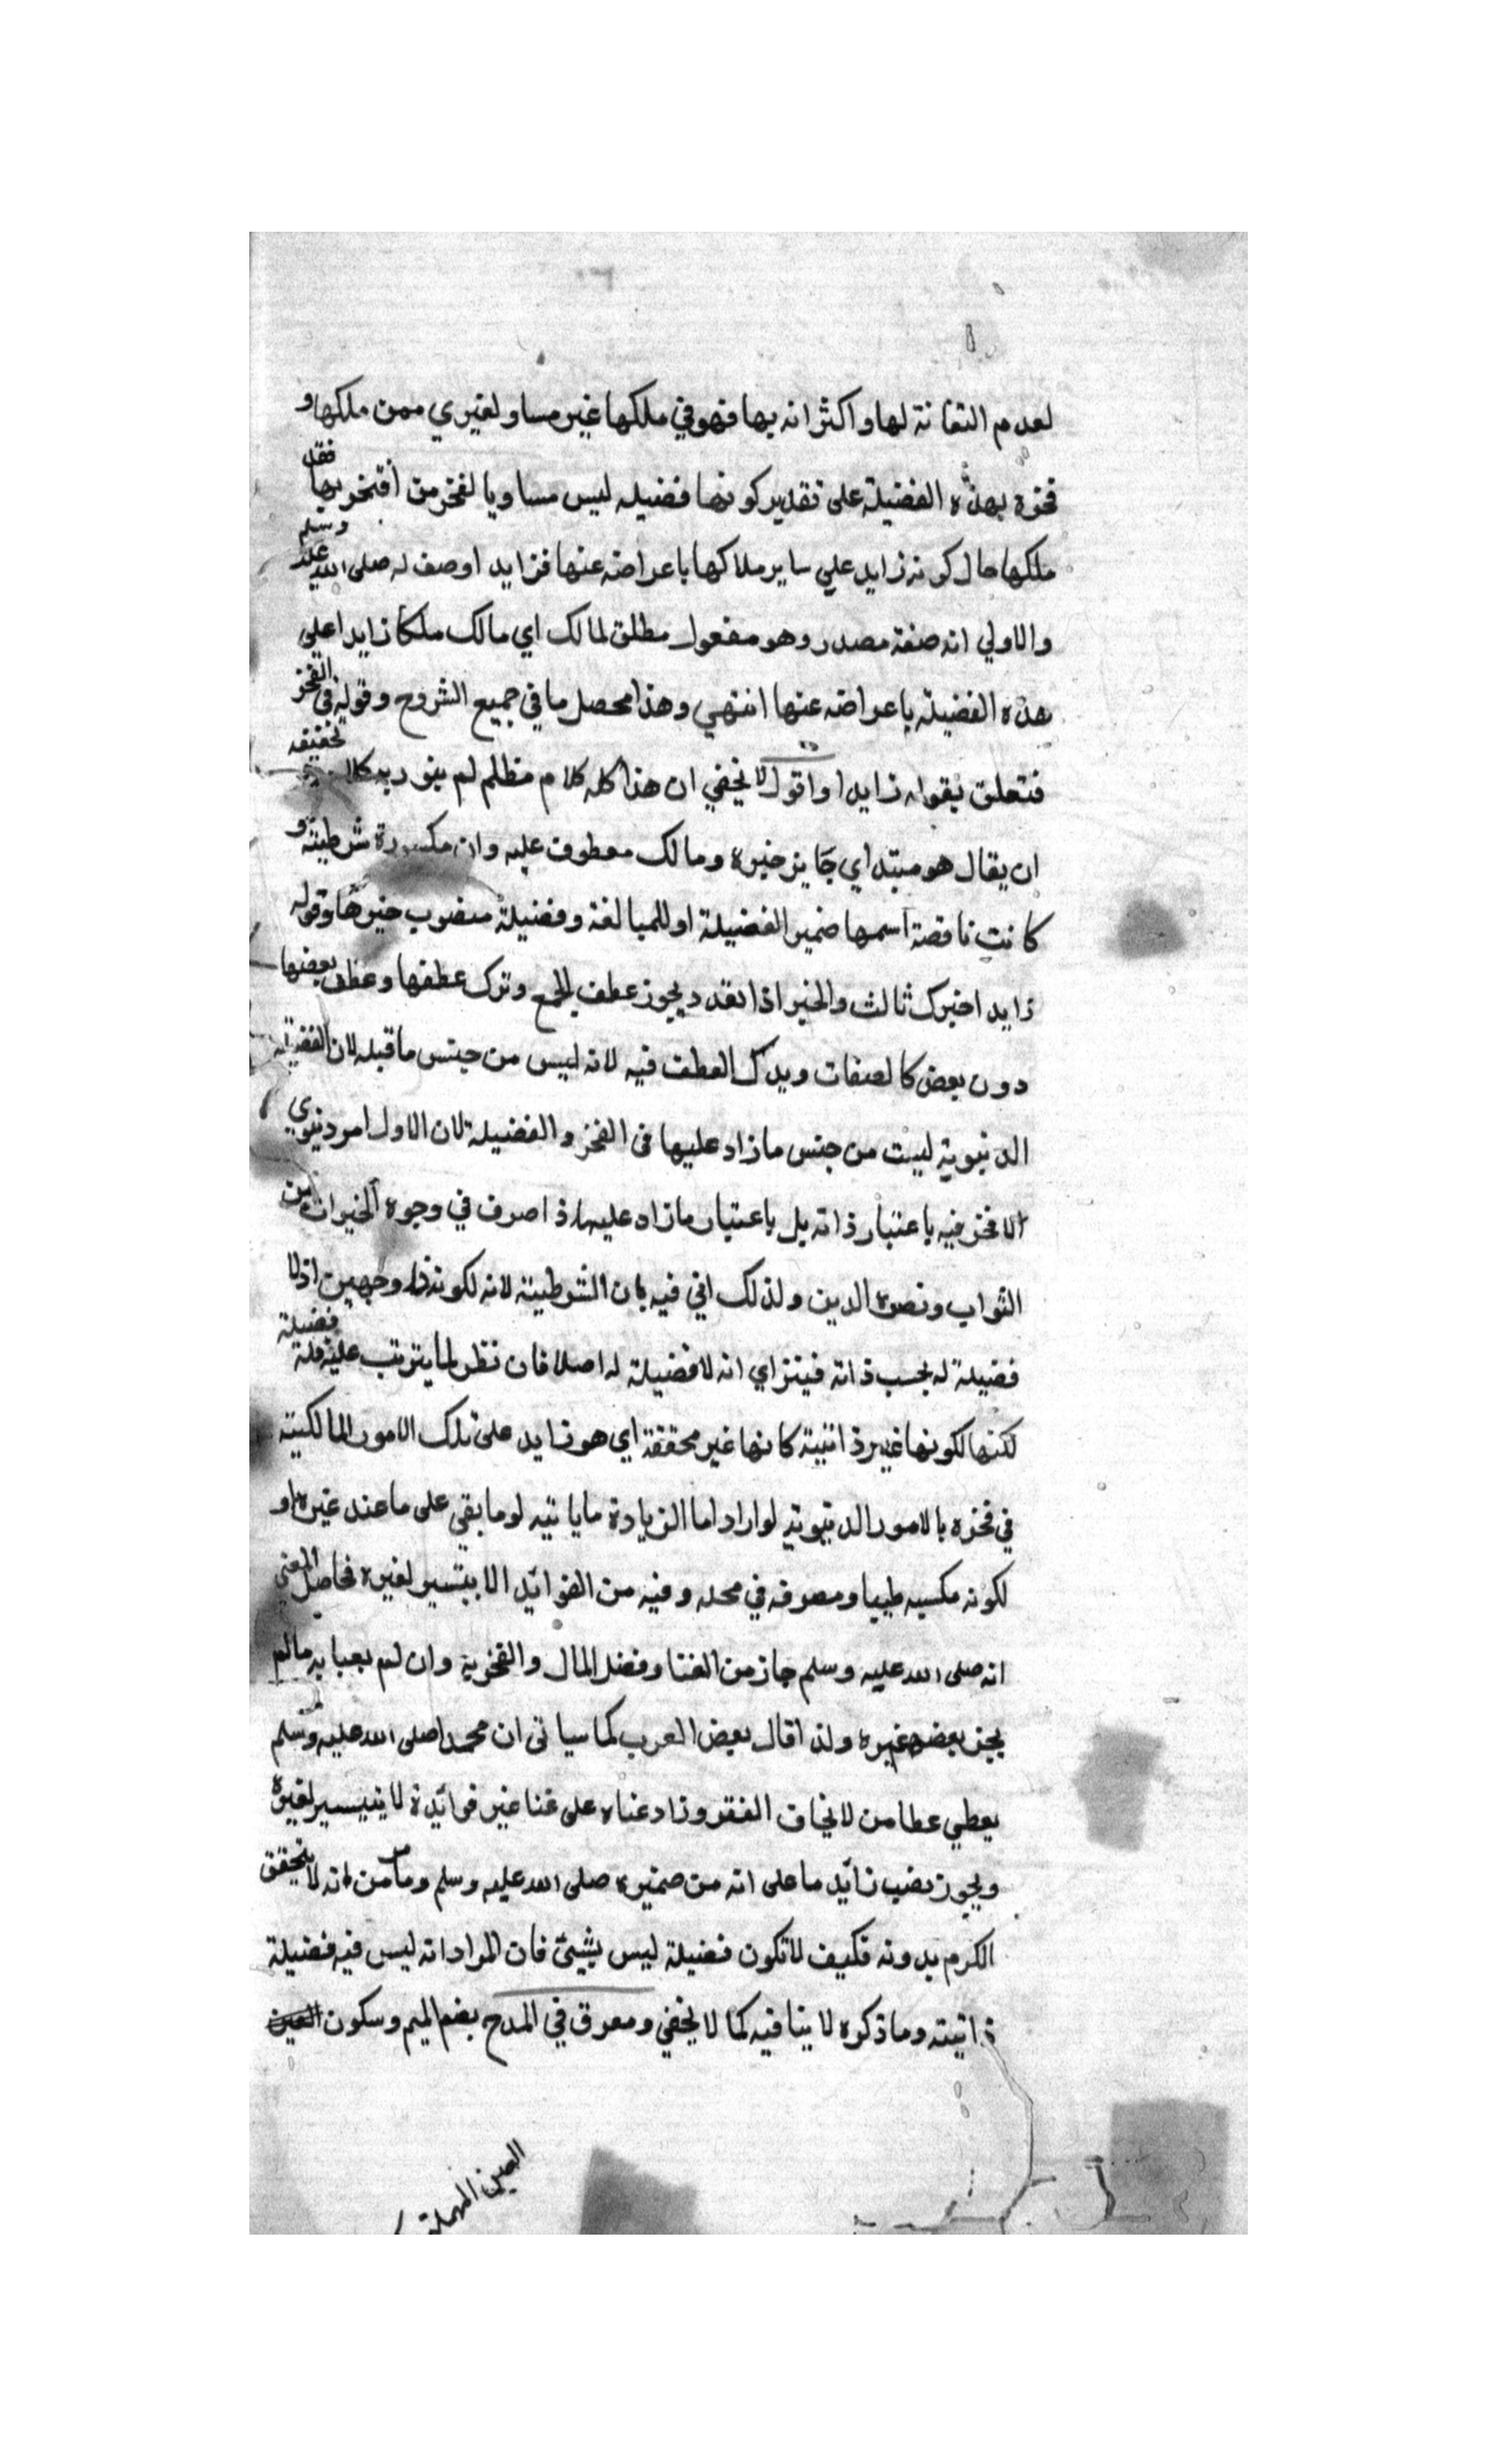 لعدم التفاتة لها واكثرانه بها فهو في ملكها غير مساو لغيري ممن ملكها و
فخره بهذه الفضيلة على تقدير كونها فضيله ليس مساويا لفخر من افتخر بها فقد
ملكها حال كونه زايد علي ساير ملاكها باعراضه عنها فزايد اوصف له صلى الله عليه وسلم
والاولي انه صفة مصدر وهو مفعول مطلق لمالك اي مالك ملكا زايدا على
هذه الفضيلة باعراضه عنها انتهي وهذا محصل ما في جميع الشروح وقوله في الفخز
فتعلق بقوله زايدا واقول لا يخفي ان هذا كله كلام مظلم لم ينور به كلا تحقيقه
ان يقال هو مبتداي جايز خبره ومالك معطوف عليه وان مكسورة شرطية و
كانت ناقصة اسمها ضمير الفضيلة او للمبالغة وفضيلة منصوب خبرها وقوله
زايد اخبرك ثالث والخبر اذا تعدد يجوز عطف الجمع وترك عطفها وعطف بعضها
دون بعض كالصفات ويدك العطف فيه لانه ليس من جنس ما قبله لان الفضيلة
الدنيوية ليست من جنس ما زاد عليها في الفخز والفضيلة لان الاول امر دنيوي
الا فخز فيه باعتبار ذاته بل باعتبار ما زاد عليه اذا صرف في وجوه الخيرات من
الثواب ونصره الدين ولذلك اتي فيه بان الشرطية لانه لكونه ذا وجهين اذ لا
فضيلة له بحسب ذاته فيتراي انه لا فضيلة له اصلا فان نظر لما يترتب عليه فله فضيلة
لكنها لكونها غير ذاتية كانها غير محققة اي هو زايد على تلك الامور المالكية
في فخزه بالامور الدنيوية لو اراد اما الزيادة ما ياتيه لو ما بقي على ما عند غيره او
لكونه مكسبه طيبا ومصرفه في محله وفيه من الفوايد الا يتسير لغيره فحاصل المعني
انه صلى الله عليه وسلم جاز من الغنا وفضل المال والفخربه وان لم يعبا به مالم
يجز بعضه غيره ولذا قال بعض العرب كما سياتي ان محمدا صلى الله عليه وسلم
يعطي عطا من لا يخاف الفقر وزاد غناه على غنا غير فوايدة لا يتيسير لغيره
ويجوز نصب زايد ما على انه من ضميره صلى الله عليه وسلم وما مر من انه لا يتحقق
الكرم بدونه فكيف لا تكون فضيلة ليس بشيئ فان المراد انه ليس فيه فضيلة
ذاتيته وما ذكره لا ينافيه كما لا يخفي ومعرق في المدح بضم الميم وسكون العين
العين المهملة